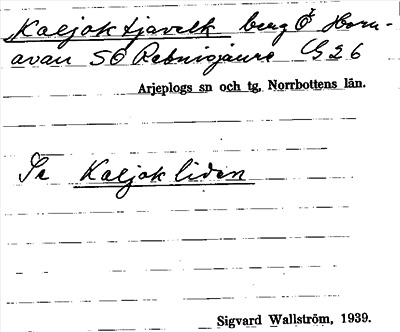 Kaljoktjavelk berg Ö Horn-
avan SO Rebnisjaure G26
Arjeplogs sn och tg, Norrbottens län.
Se Kaljokliden
Sigvard Wallström, 1939.